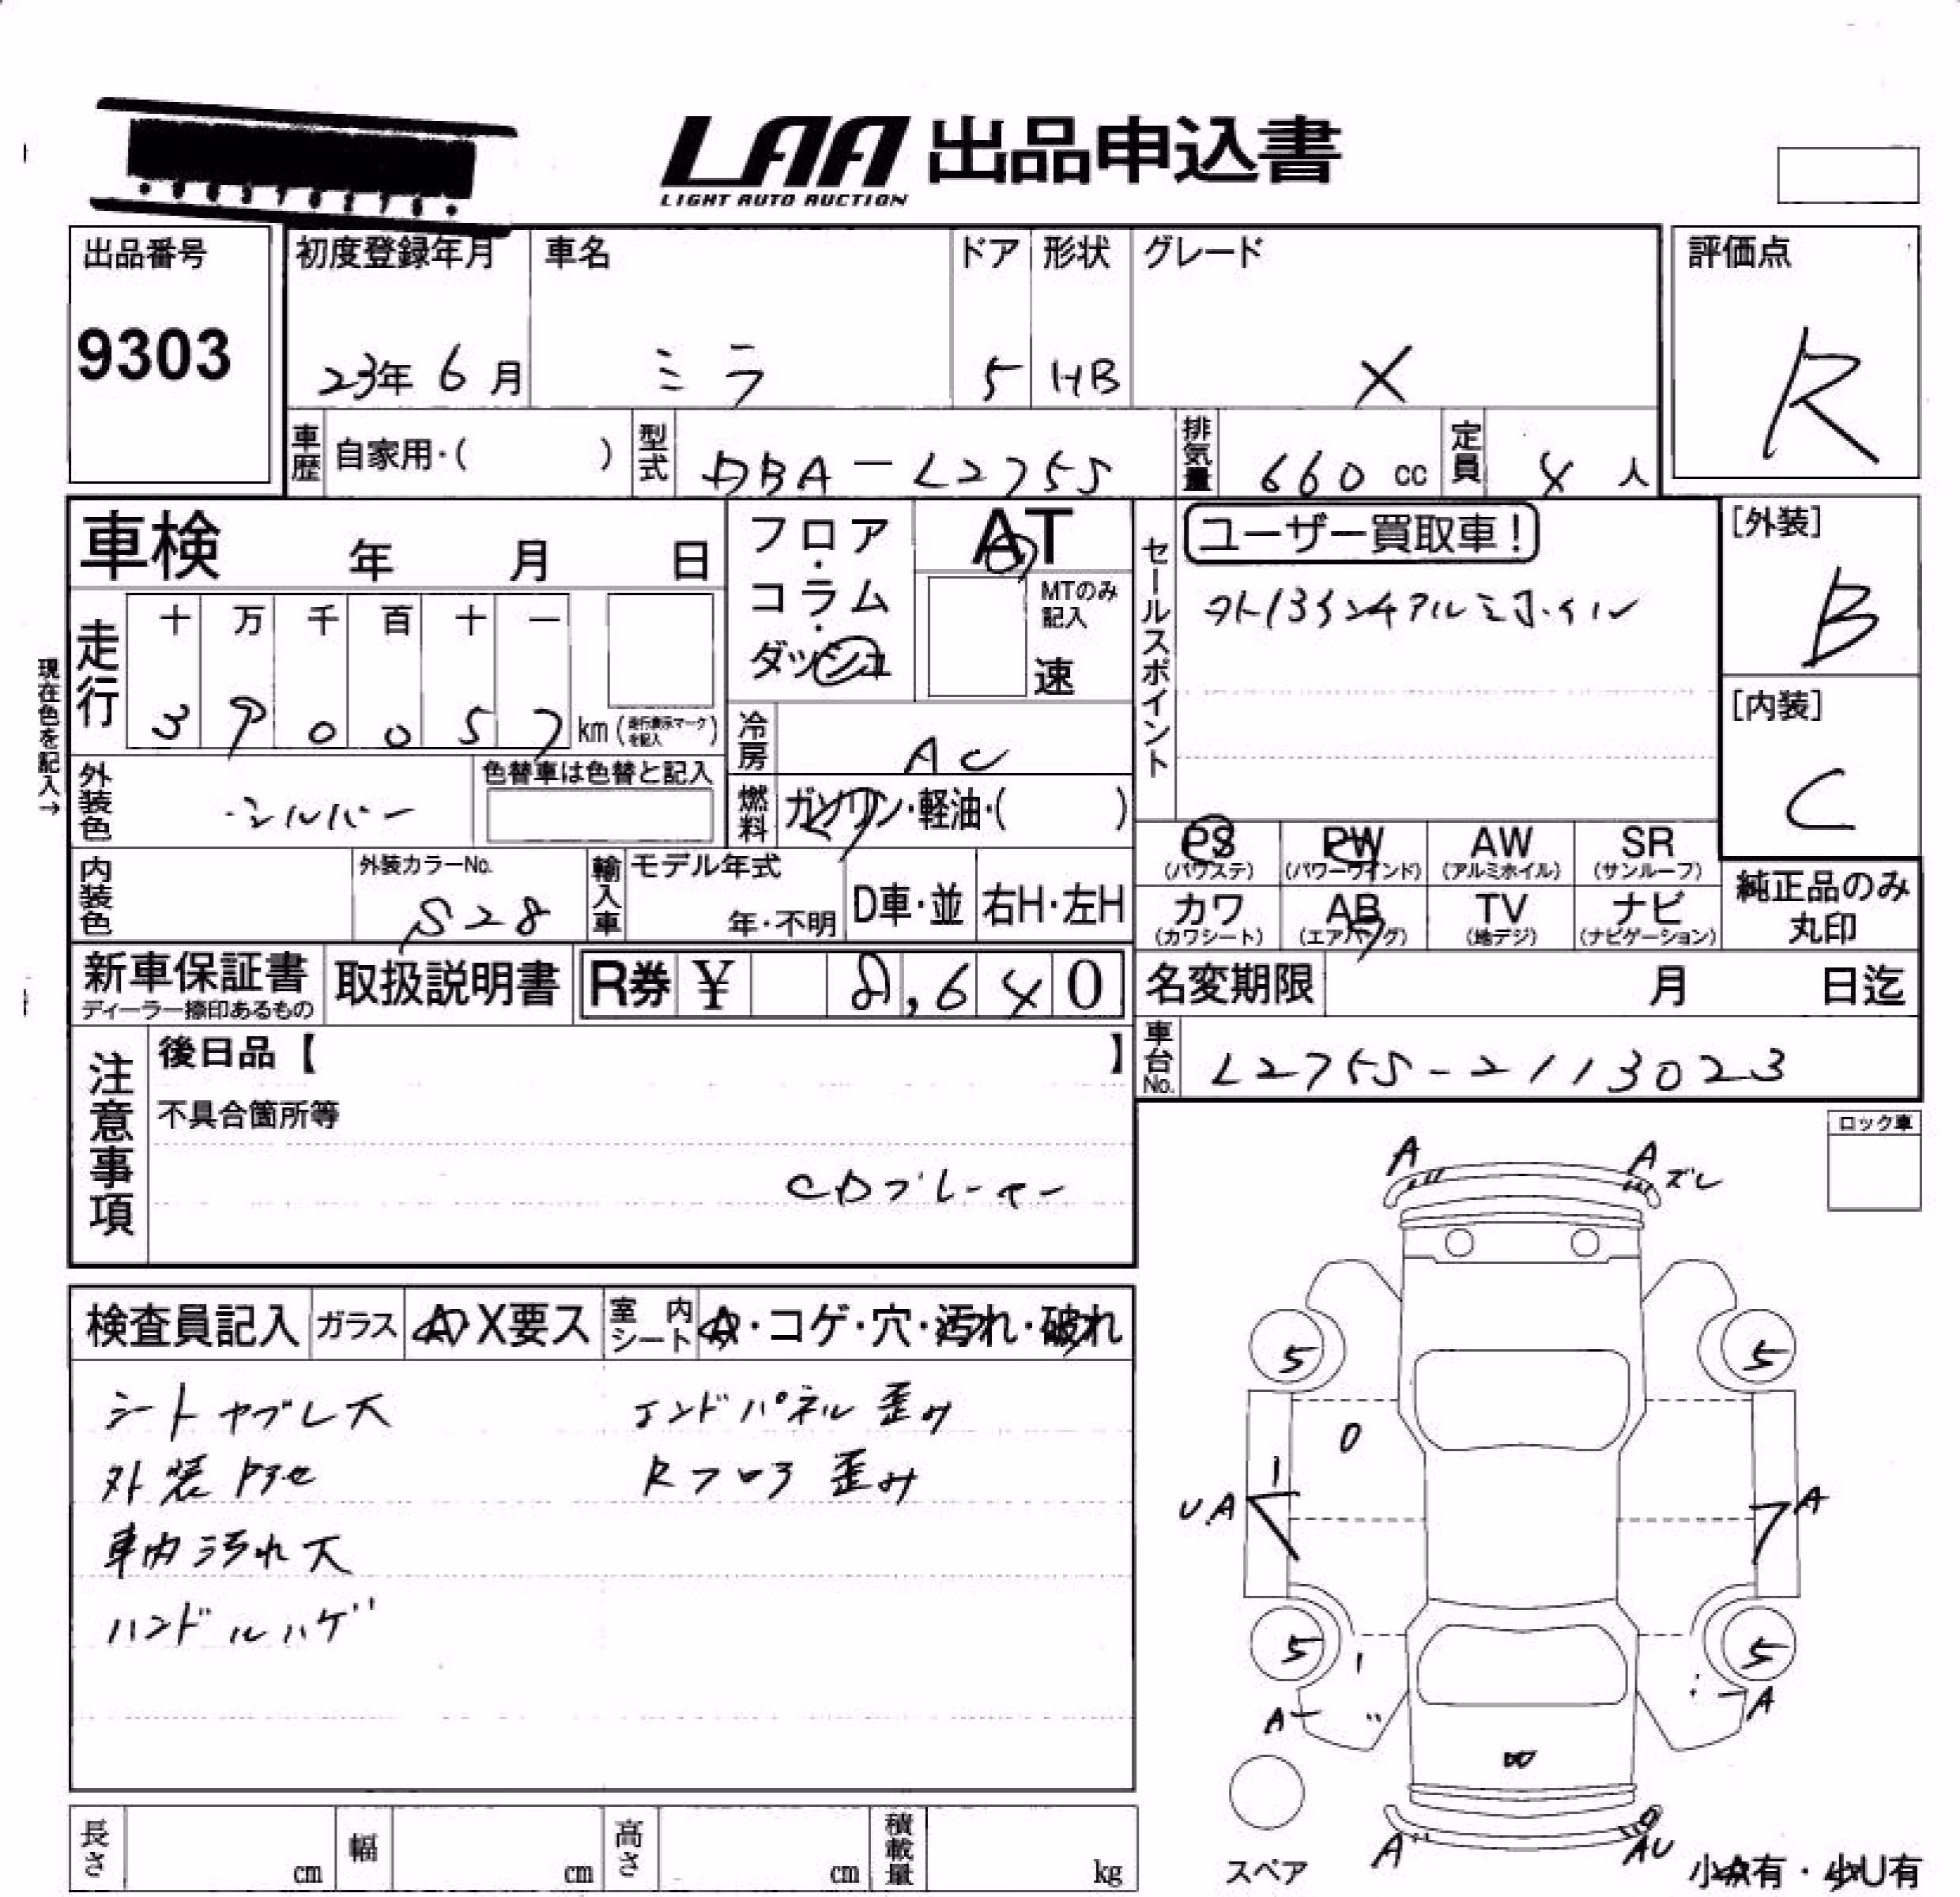 LAA 出品申込書
LIGHT AUTO AUCTION
出品番号
9303
初度登録年月
23年 6月
車名
ミラ
ドア
5
形状
HB
グレード
X
評価点
R
車歴 自家用・( )
型式 DBA-L275S
排気量 660 cc
定員 4 人
車検 年 月 日
フロア・コラム・ダッシュ
AT
MTのみ記入
速
セールスポイント
ユーザー買取車!
外13インチアルミホイル
[外装]
B
[内装]
C
現在色を記入→
走行
十 万 千 百 十 一
3 9 0 0 5 7 km (走行表示マークを記入)
冷房 AC
外装色 シルバー
色替車は色替と記入
燃料 ガソリン・軽油・( )
PS (パワステ)
PW (パワーウインド)
AW (アルミホイル)
SR (サンルーフ)
カワ (カワシート)
AB (エアバッグ)
TV (地デジ)
ナビ (ナビゲーション)
純正品のみ丸印
内装色
外装カラーNo.
S28
輸入車
モデル年式
年・不明
D車・並
右H・左H
新車保証書
ディーラー捺印あるもの
取扱説明書
R券 ¥ 8,640
名変期限 月 日迄
車台No. L275S-2113023
注意事項
後日品【 】
不具合箇所等
CDプレーヤー
ロック車
検査員記入
ガラス A・X要ス
室内シート A・コゲ・穴・汚れ・破れ
シートヤブレ大
エンドパネル歪み
外装アセ
Rフロア歪み
車内汚れ大
ハンドルハゲ
A
A ズレ
5
5
U.A
A
5
5
A
A
A
AU
スペア
小A有・小U有
長さ cm
幅 cm
高さ cm
積載量 kg